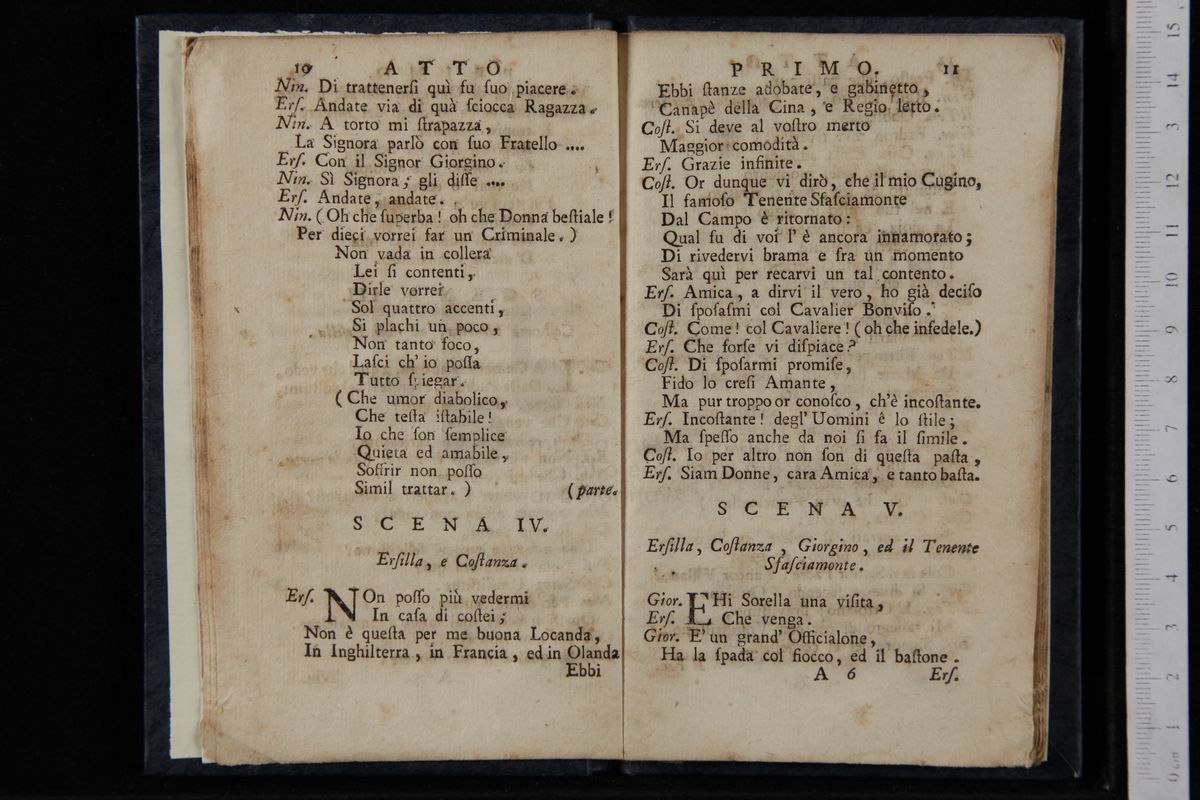 10 ATTO
Nin. Di trattenerſi quì fu ſuo piacere.
Erſ. Andate via di quà ſciocca Ragazza.
Nin. A torto mi ſtrapazza,
La Signora parlò con ſuo Fratello ....
Erſ. Con il Signor Giorgino.
Nin. Sì Signora; gli diſſe ....
Erſ. Andate, andate.
Nin. (Oh che ſuperba! oh che Donna beſtiale!
Per dieci vorrei far un Criminale.)
Non vada in collera
Lei ſi contenti,
Dirle vorrei
Sol quattro accenti,
Si plachi un poco,
Non tanto foco,
Laſci ch' io poſſa
Tutto ſpiegar.
(Che umor diabolico,
Che teſta iſtabile!
Io che ſon ſemplice
Quieta ed amabile,
Soffrir non poſſo
Simil trattar.) (parte.
SCENA IV.
Erſilla, e Coſtanza.
Erſ. NOn poſſo più vedermi
In caſa di coſtei;
Non è queſta per me buona Locanda,
In Inghilterra, in Francia, ed in Olanda
Ebbi
PRIMO. 11
Ebbi ſtanze adobate, e gabinetto,
Canapè della Cina, e Regio letto.
Coſt. Si deve al voſtro merto
Maggior comodità.
Erſ. Grazie infinite.
Coſt. Or dunque vi dirò, che il mio Cugino,
Il famoſo Tenente Sfaſciamonte
Dal Campo è ritornato:
Qual fu di voi l' è ancora innamorato;
Di rivedervi brama e fra un momento
Sarà quì per recarvi un tal contento.
Erſ. Amica, a dirvi il vero, ho già deciſo
Di ſpoſaſmi col Cavalier Bonviſo.
Coſt. Come! col Cavaliere! (oh che infedele.)
Erſ. Che forſe vi diſpiace?
Coſt. Di ſpoſarmi promiſe,
Fido lo creſi Amante,
Ma pur troppo or conoſco, ch'è incoſtante.
Erſ. Incoſtante! degl' Uomini è lo ſtile;
Ma ſpeſſo anche da noi ſi fa il ſimile.
Coſt. Io per altro non ſon di queſta paſta,
Erſ. Siam Donne, cara Amica, e tanto baſta.
SCENA V.
Erſilla, Coſtanza, Giorgino, ed il Tenente
Sfaſciamonte.
Gior. EHi Sorella una viſita,
Erſ. Che venga.
Gior. E' un grand' Officialone,
Ha la ſpada col fiocco, ed il baſtone.
A 6 Erſ.
0 cm 1 2 3 4 5 6 7 8 9 10 11 12 13 14 15